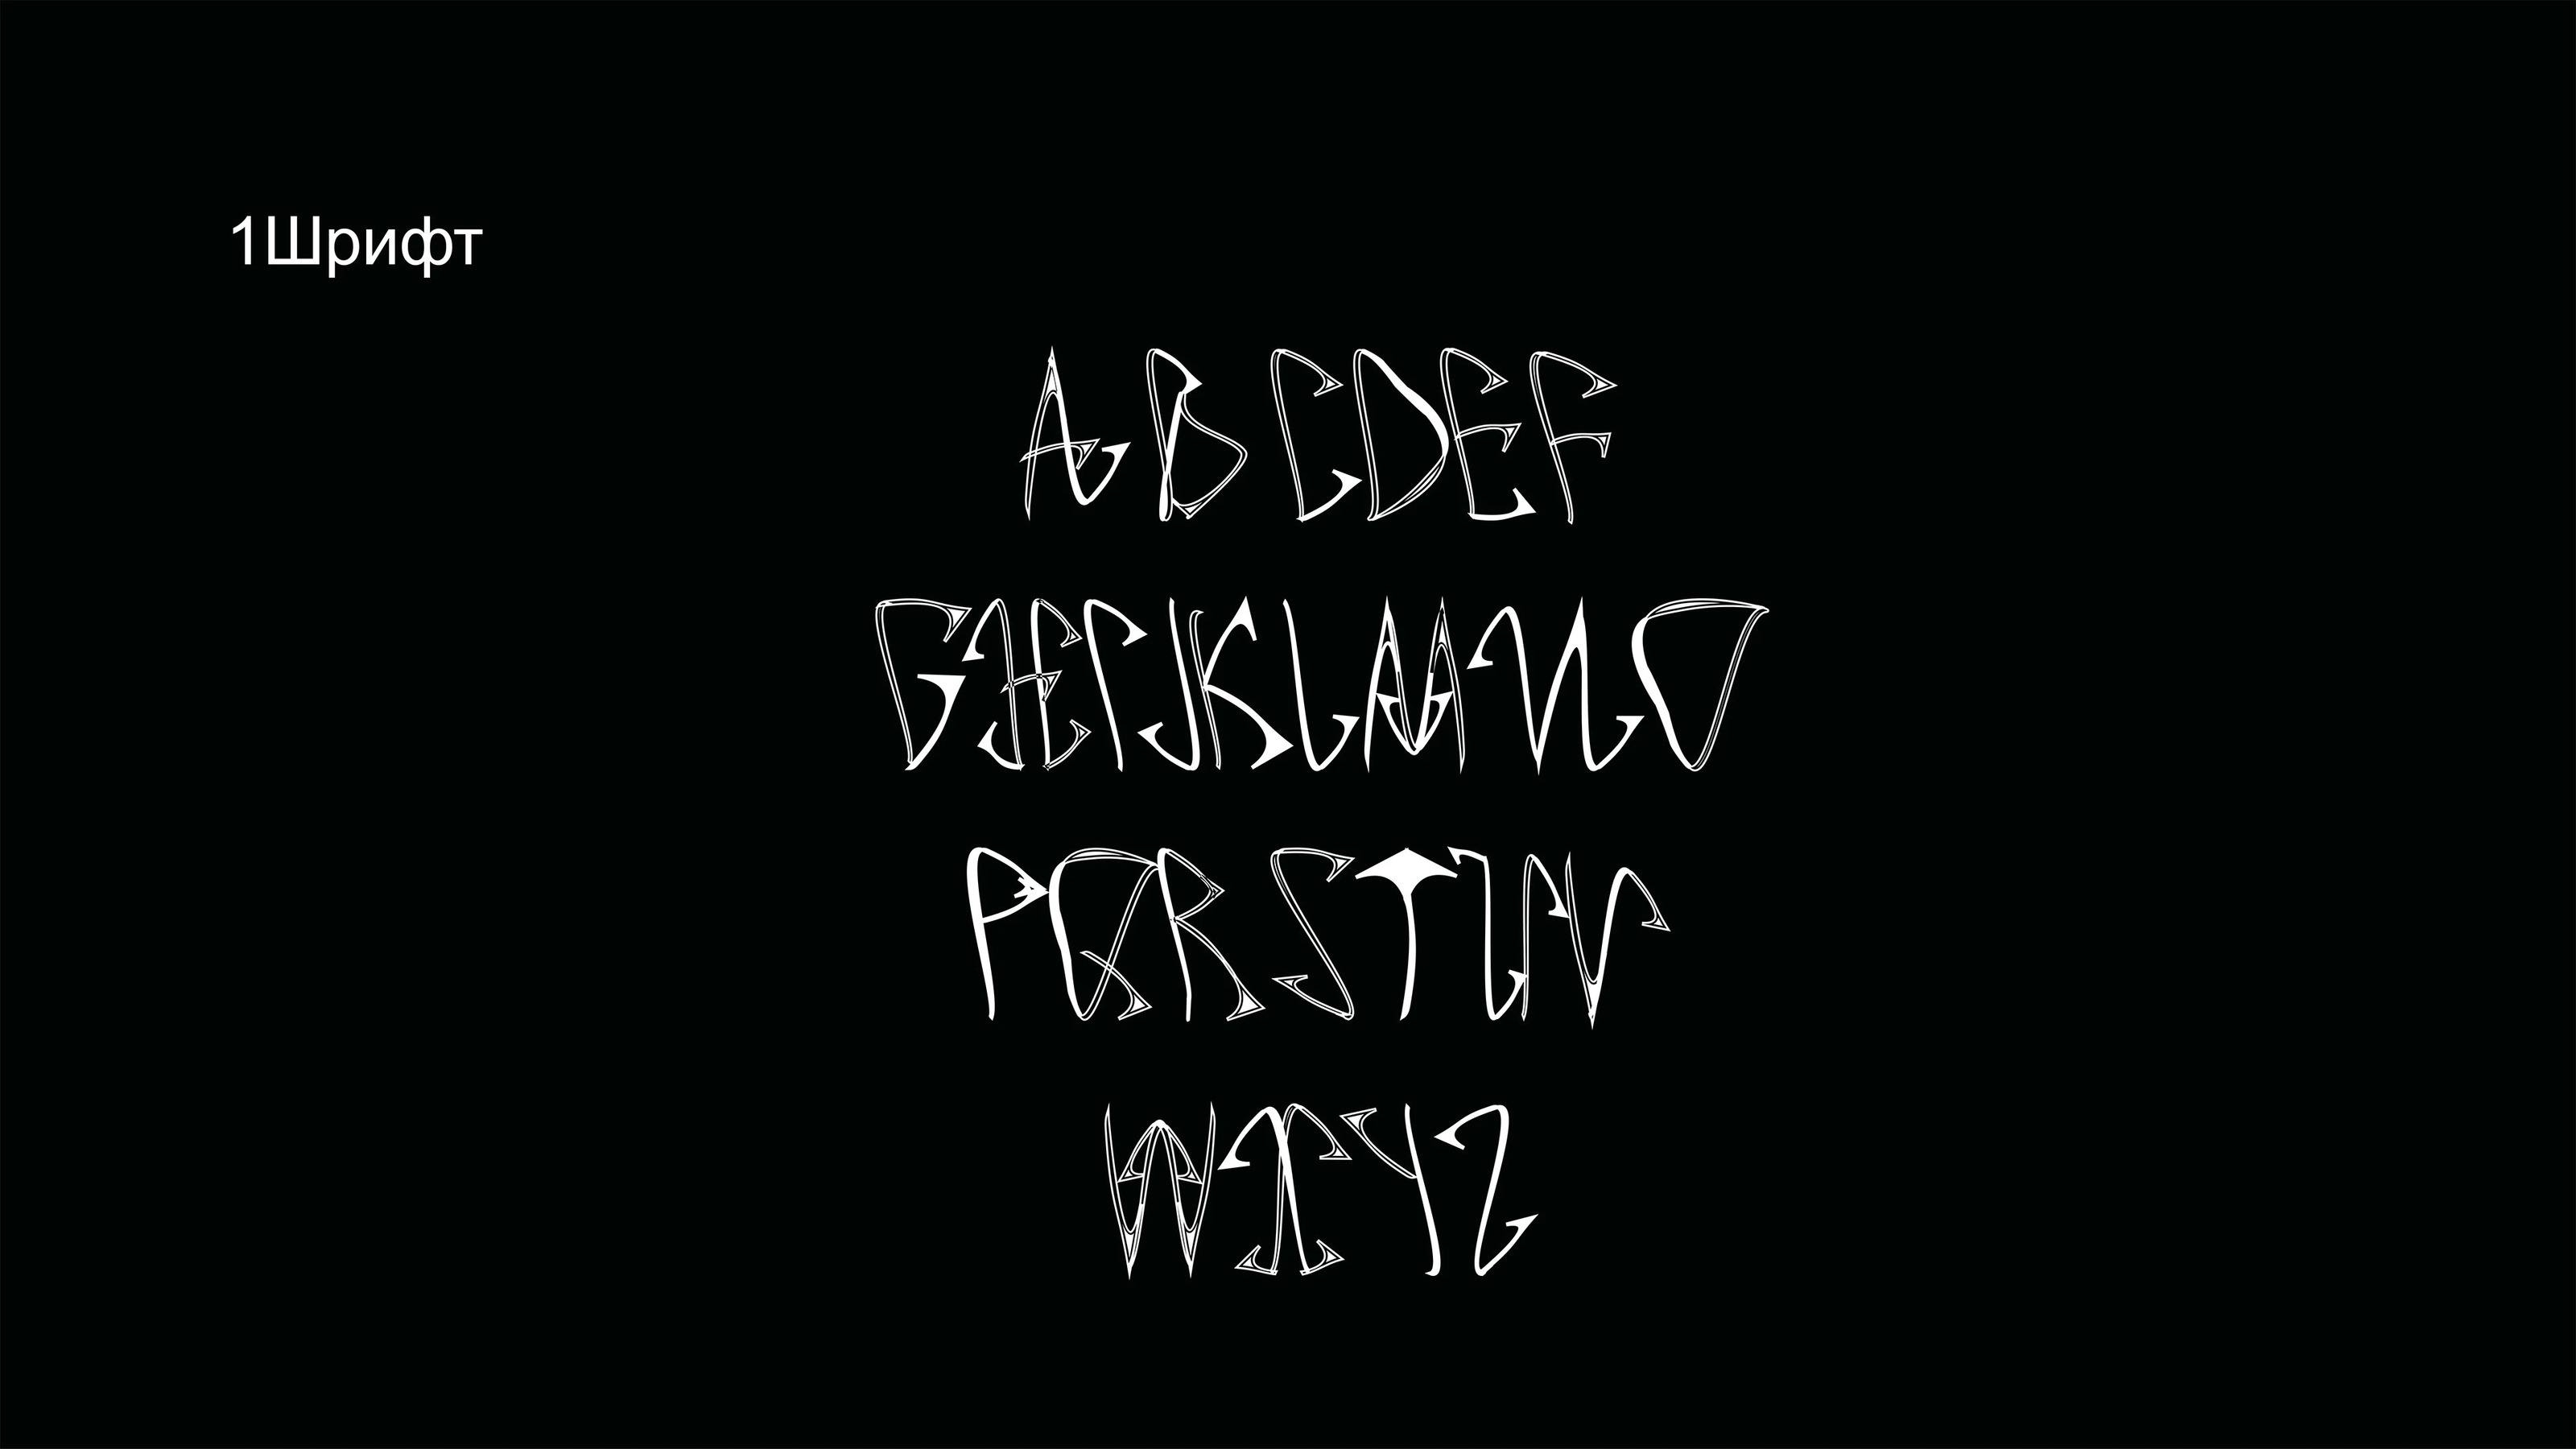 1Шрифт
A B C D E F
G H I J K L M N O
P Q R S T U V
W X Y Z